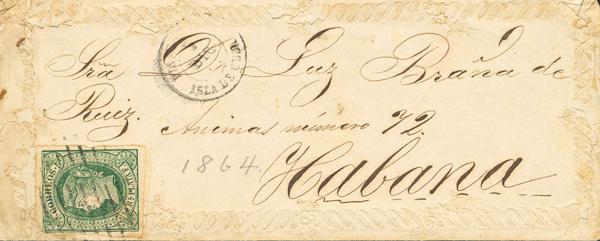 Sra Da Luz Braña de
Ruiz. Animas número 72.
1864.
Habana
ISLA DE CUBA
CORREOS